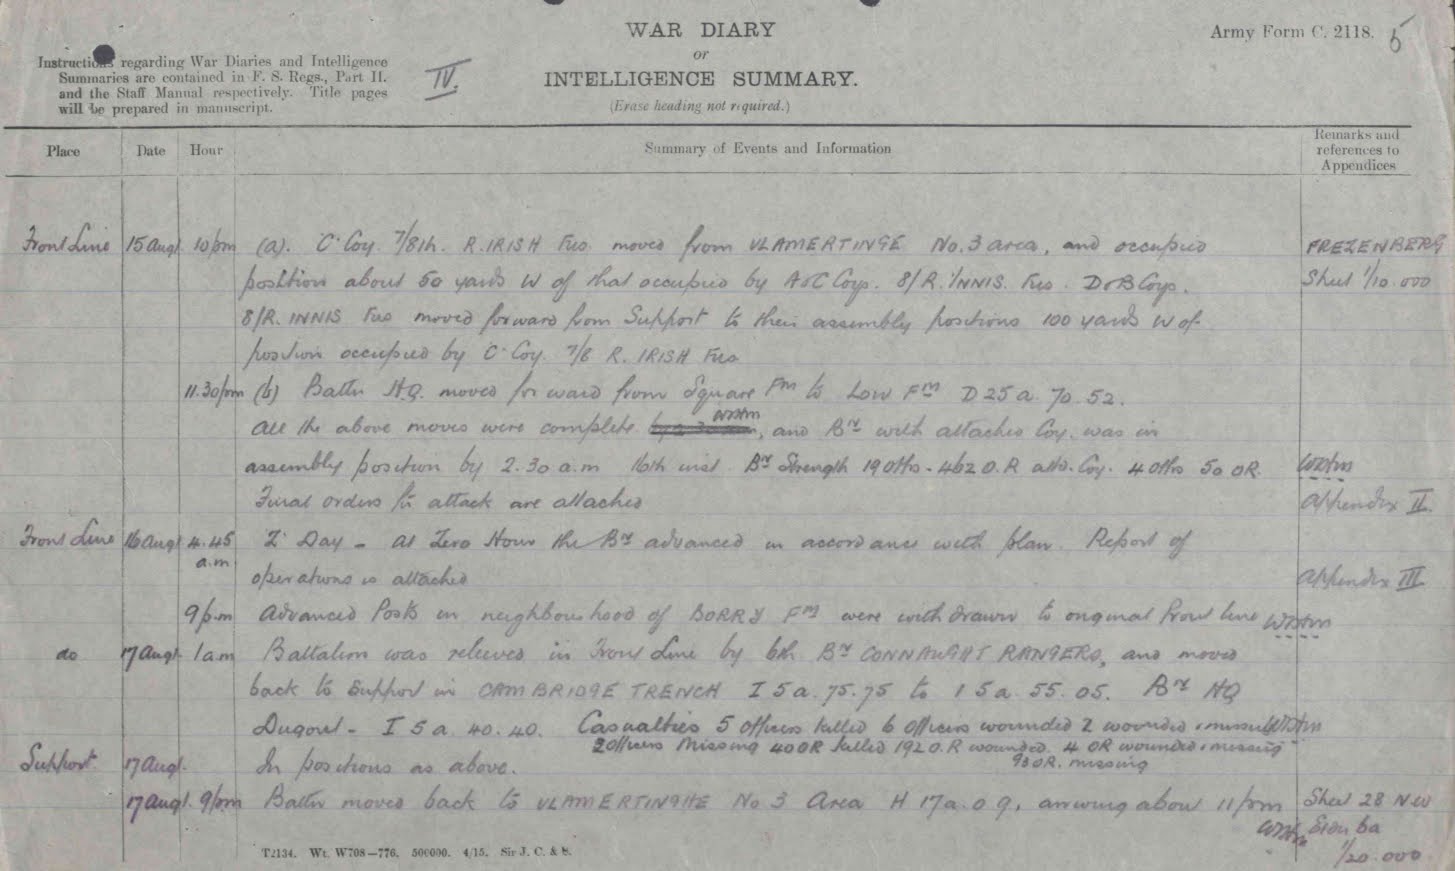 WAR DIARY
Army Form C. 2118.
5
or
INTELLIGENCE SUMMARY.
(Erase heading not required.)
Instructions regarding War Diaries and Intelligence
Summaries are contained in F. S. Regs., Part II.
and the Staff Manual respectively. Title pages
will be prepared in manuscript.
IV.
Place Date Hour Summary of Events and Information Remarks and references to Appendices
Front Line 15 Augt. 10 pm (a). 'C' Coy. 7/8th. R. IRISH Fus. moved from VLAMERTINGE No. 3 area, and occupied FREZENBERG
position about 50 yards W of that occupied by A & C Coys. 8/R. INNIS. Fus. D & B Coys. Sheet 1/10.000
8/R. INNIS Fus moved forward from Support to their assembly positions 100 yards W of
position occupied by 'C' Coy. 7/8 R. IRISH Fus
11.30 pm (b) Battn H.Q. moved forward from Square Fm to Low Fm D 25 a. 70. 52.
All the above moves were complete, and Bn with attached Coy. was in
assembly position by 2.30 a.m 16th inst. Bn Strength 19 Offs - 462 O.R attd. Coy. 4 Offs 50 OR.
Final orders for attack are attached Appendix II.
Front Line 16 Augt 4.45 a.m Z' Day - At Zero Hour the Bn advanced in accordance with plan. Report of
operations is attached Appendix III
9 p.m Advanced Posts in neighbourhood of BORRY Fm were withdrawn to original Front line
do 17 Augt. 1 a.m Battalion was relieved in Front Line by 6th Bn CONNAUGHT RANGERS, and moved
back to Support in CAMBRIDGE TRENCH I 5 a. 75. 75 to I 5 a. 55. 05. Bn HQ
Dugout - I 5 a. 40. 40. Casualties 5 officers killed 6 officers wounded 2 wounded & missing
2 officers Missing 40 OR killed 192 O.R wounded. 4 OR wounded & missing
93 OR. missing
Support. 17 Augt. In positions as above.
17 Augt. 9 pm Battn moved back to VLAMERTINGHE No 3 Area H 17 a. 0 9, arriving about 11 pm Sheet 28 NW
Edn 6a
1/20.000
T2134. Wt. W708—776. 500000. 4/15. Sir J. C. & S.